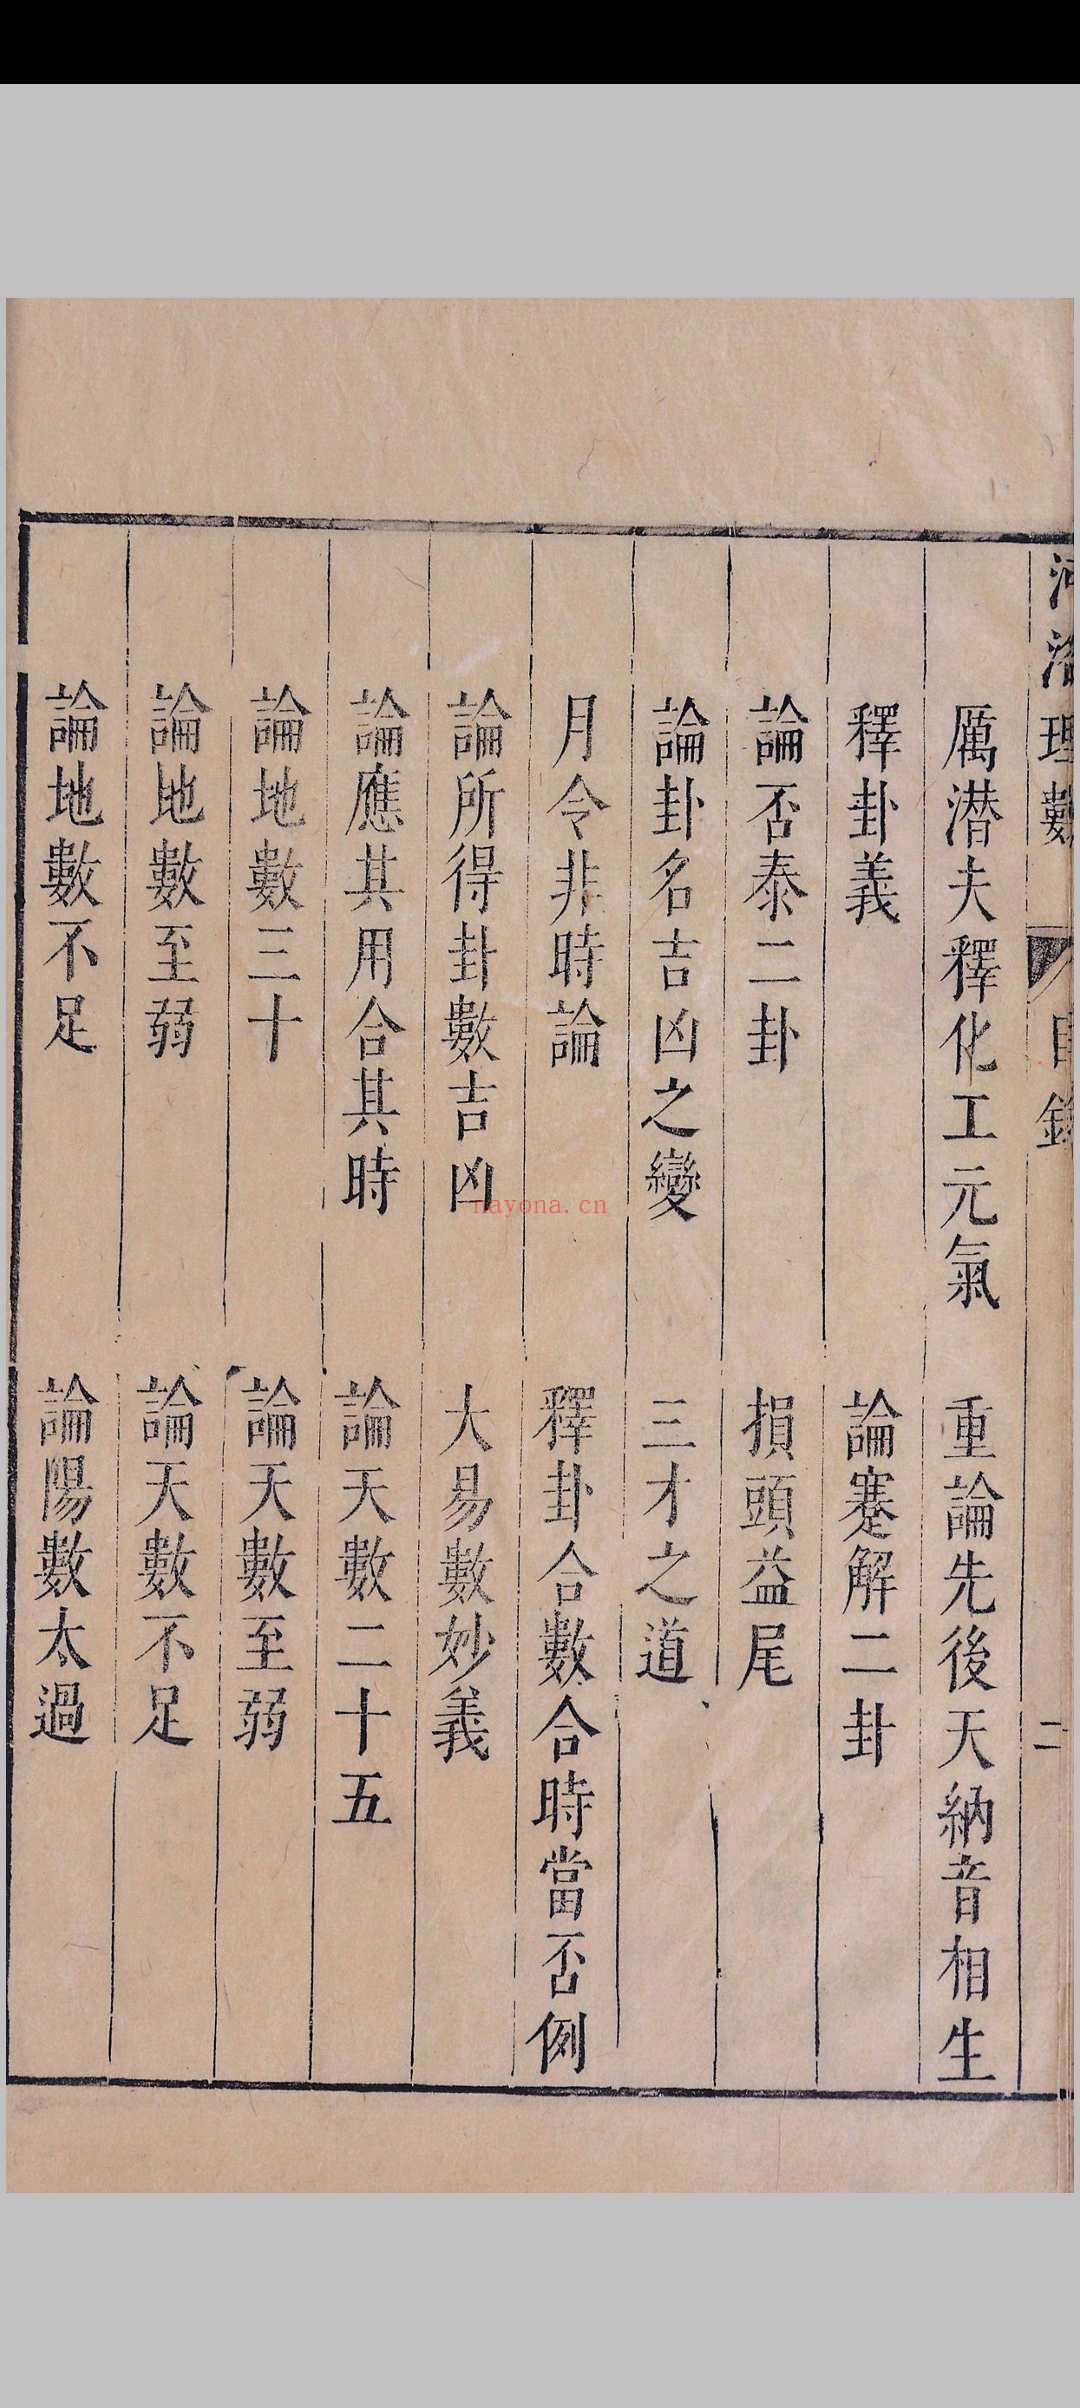 河洛理數 目錄 二
厲潜夫釋化工元氣 重論先後天納音相生
釋卦義 論蹇解二卦
論否泰二卦 損頭益尾
論卦名吉凶之變 三才之道
月令非時論 釋卦合數合時當否例
論所得卦數吉凶 大易數妙義
論應其用合其時 論天數二十五
論地數三十 論天數至弱
論地數至弱 論天數不足
論地數不足 論陽數太過
nayona.cn